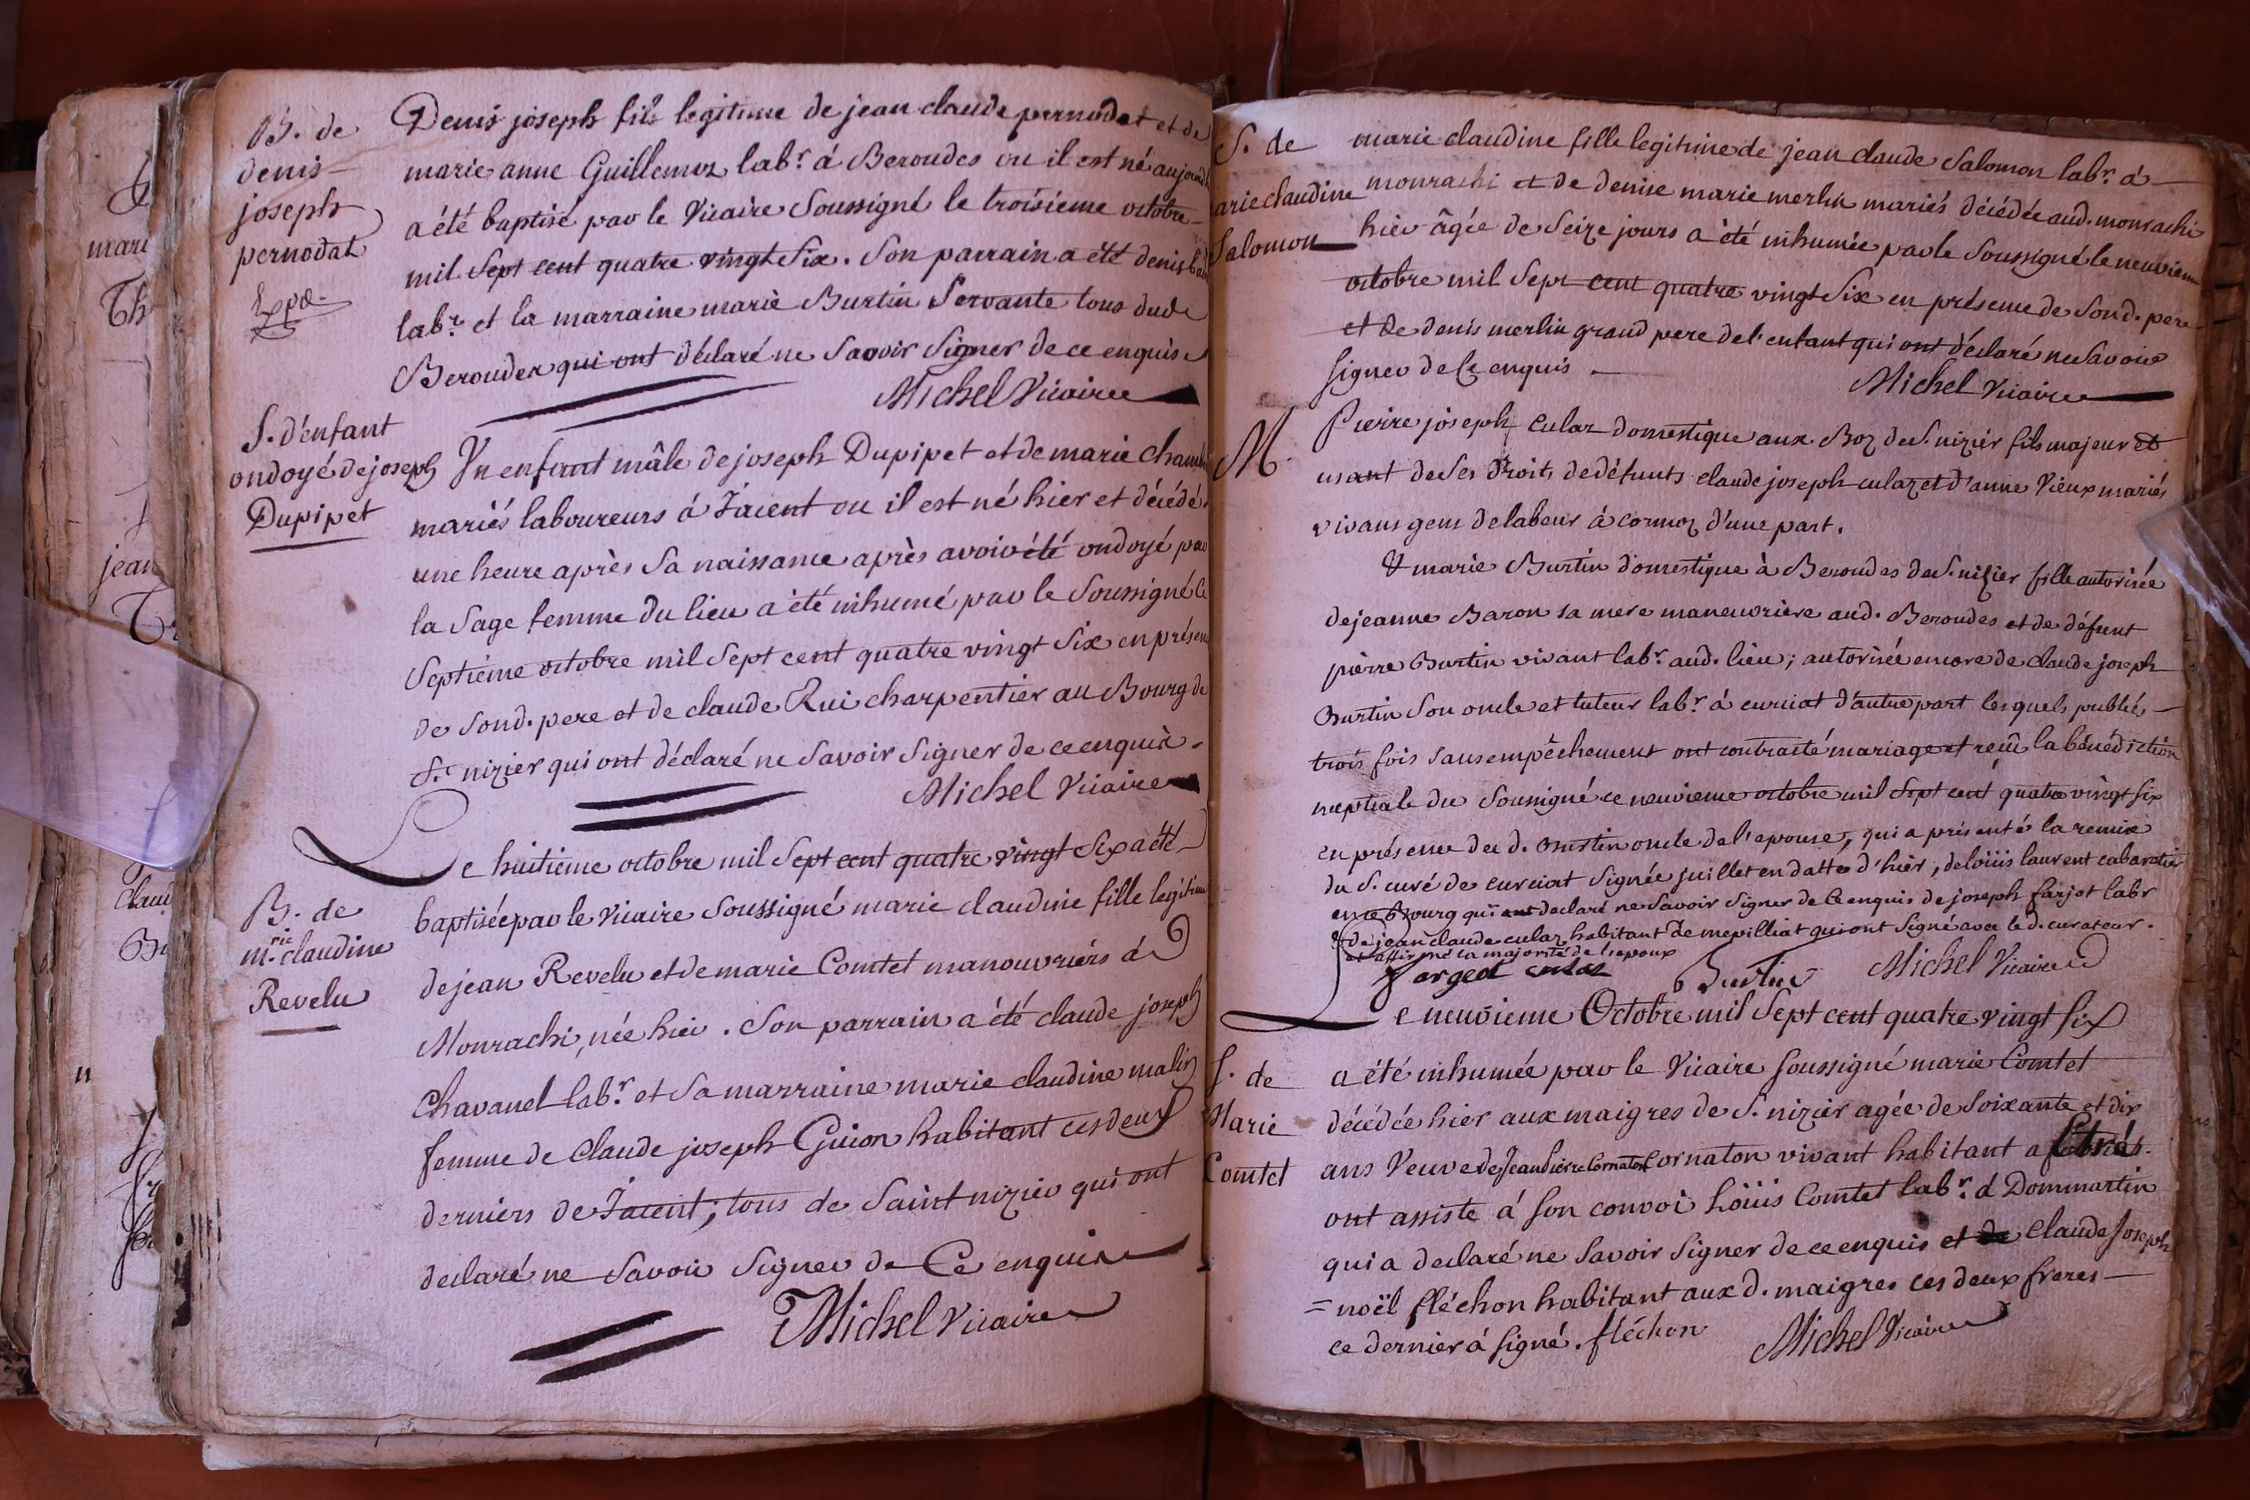 B. de
denis
joseph
pernodat
Denis joseph fils legitime de jean claude pernodat et de
marie anne Guillemoz labr. á Beroudes ou il est né
a été baptisé par le Vicaire Soussigné le troisieme octobre
mil Sept cent quatre vingt Six. Son parrain a été denis
labr. et la marraine marie Burtin Servante tous dud.
Beroudes qui ont déclaré ne Savoir Signer de ce enquis
Michel Vicaire
S. d'enfant
ondoyé de joseph
Dupipet
Un enfant mâle de joseph Dupipet et de marie
mariés laboureurs á Jaient ou il est né hier et décédé
une heure après Sa naissance après avoir été ondoyé par
la Sage femme du lieu a été inhumé par le Soussigné le
Septième octobre mil Sept cent quatre vingt Six en
de Sond. pere et de claude Rui charpentier au Bourg de
St. nizier qui ont déclaré ne Savoir Signer de ce enquis.
Michel Vicaire
Le huitième octobre mil Sept cent quatre vingt Six a été
B. de
m.rie claudine
Revelu
baptisée par le Vicaire Soussigné marie claudine fille
de jean Revelu et de marie Comtet manouvriérs á
Monrachi, née hier. Son parrain a été claude joseph
Chavanel labr. et Sa marraine marie claudine malin
femme de Claude joseph Guion habitant ces deux
derniers de Jaient; tous de Saint nizier qui ont
declaré ne Savoir Signer de Ce enquis
Michel Vicaire
S. de
arie claudine
Salomon
marie claudine fille legitime de jean claude Salomon labr. á
monrachi et de denise marie merlin mariés décédée aud. monrachi
hier âgée de Seize jours a été inhumée par le Soussigné le neuvieme
octobre mil Sept cent quatre vingt Six en présence de Sond. pere
et de denis merlin grand pere de l'enfant qui ont déclaré ne Savoir
Signer de Ce enquis.
Michel Vicaire
M.
Pierre joseph Culaz domestique aux Boz de S. nizier fils majeur et
usant de Ses droits de défunts claude joseph culaz et d'anne Vieux mariés
vivans gens de labeur á cormoz d'une part.
& marie Burtin domestique à Beroudes de S. nizier fille autorisée
de jeanne Baron sa mere maneuvrière aud. Beroudes et de défunt
pierre Burtin vivant labr. aud. lieu; autorisée encore de claude joseph
Burtin Son oncle et tuteur labr. á curciat d'autre part lesquels publiés
trois fois sans empêchement ont contracté mariage et reçu la bénédiction
nuptiale du Soussigné ce neuvieme octobre mil Sept cent quatre vingt six
en présence du d. Burtin oncle de l'epouse, qui a présenté la remise
du S. curé de curciat Signée juillet en datte d'hier, de loüis laurent cabaretier
en ce Bourg qui ont declaré ne Savoir Signer de Ce enquis de joseph farjot labr
& de jean claude culaz habitant de mepilliat qui ont Signé avec le d. curateur.
et affirmé la majorité de l'epoux
fargeot culaz Burtin Michel Vicaire
Le neuvieme Octobre mil Sept cent quatre vingt Six
S. de
Marie
Comtet
a été inhumée par le Vicaire Soussigné marie Comtet
décédée hier aux maigres de S. nizier agée de Soixante et dix
ans Veuve de Jean Pierre Cornaton Cornaton vivant habitant a
ont assiste á Son convoi Loüis Comtet labr. á Dommartin
qui a declaré ne Savoir Signer de ce enquis et de Claude Joseph
= noël fléchon habitant aux d. maigres ces deux freres
ce dernier á Signé. fléchon
Michel Vicaire
mari
Th
jean
Claud